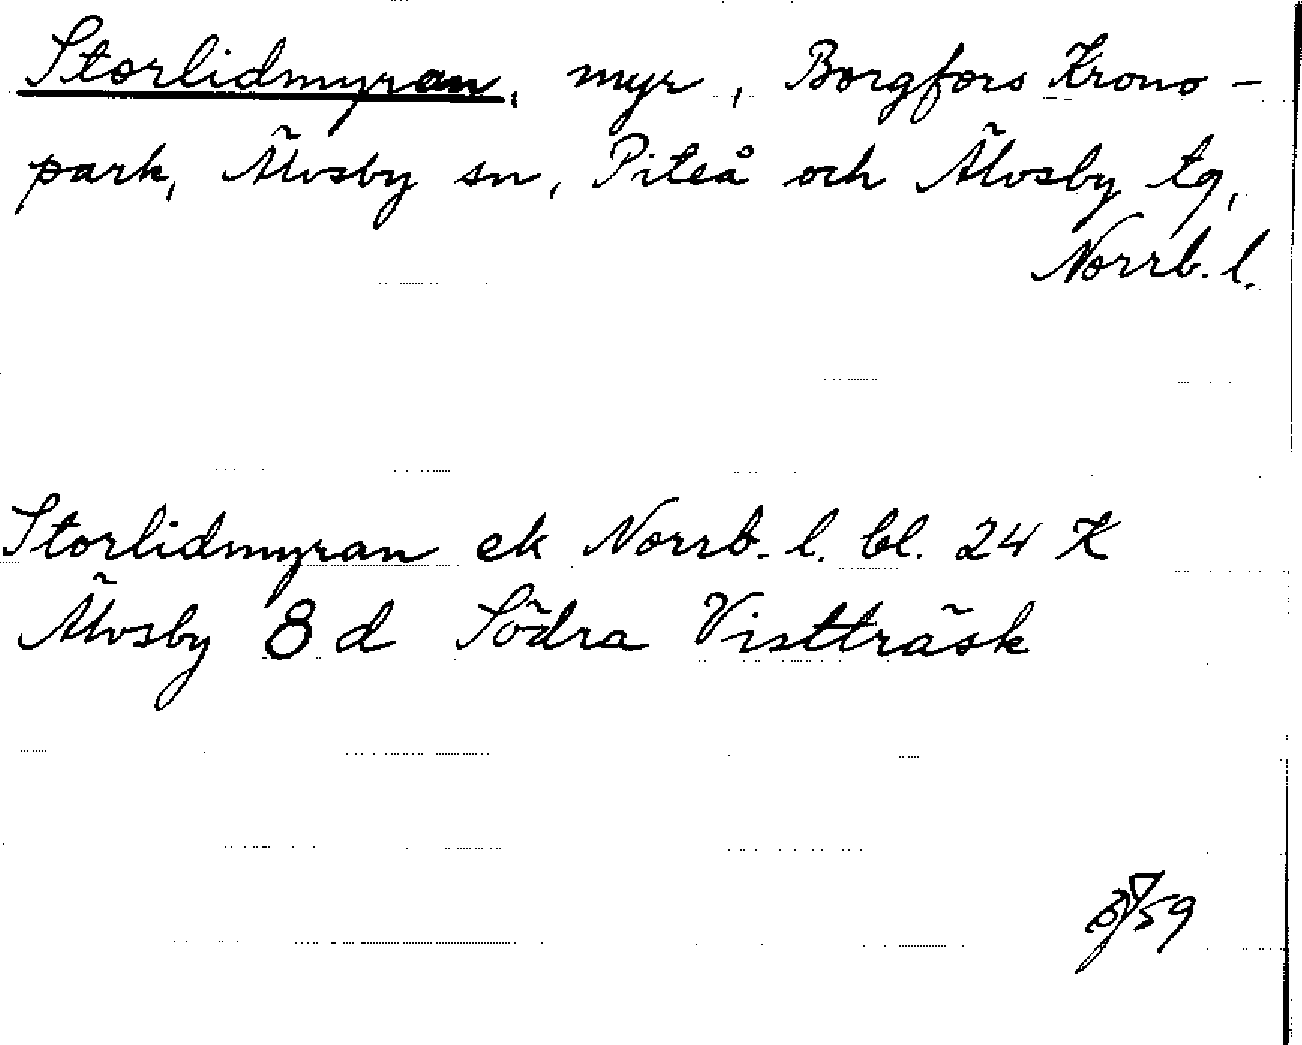 Storlidmyran, myr, Borgfors Krono-
park, Älvsby sn, Piteå och Älvsby tg,
Norrb. l.
Storlidmyran ek Norrb. l. bl. 24 K
Älvsby 8 d Södra Vistträsk
59